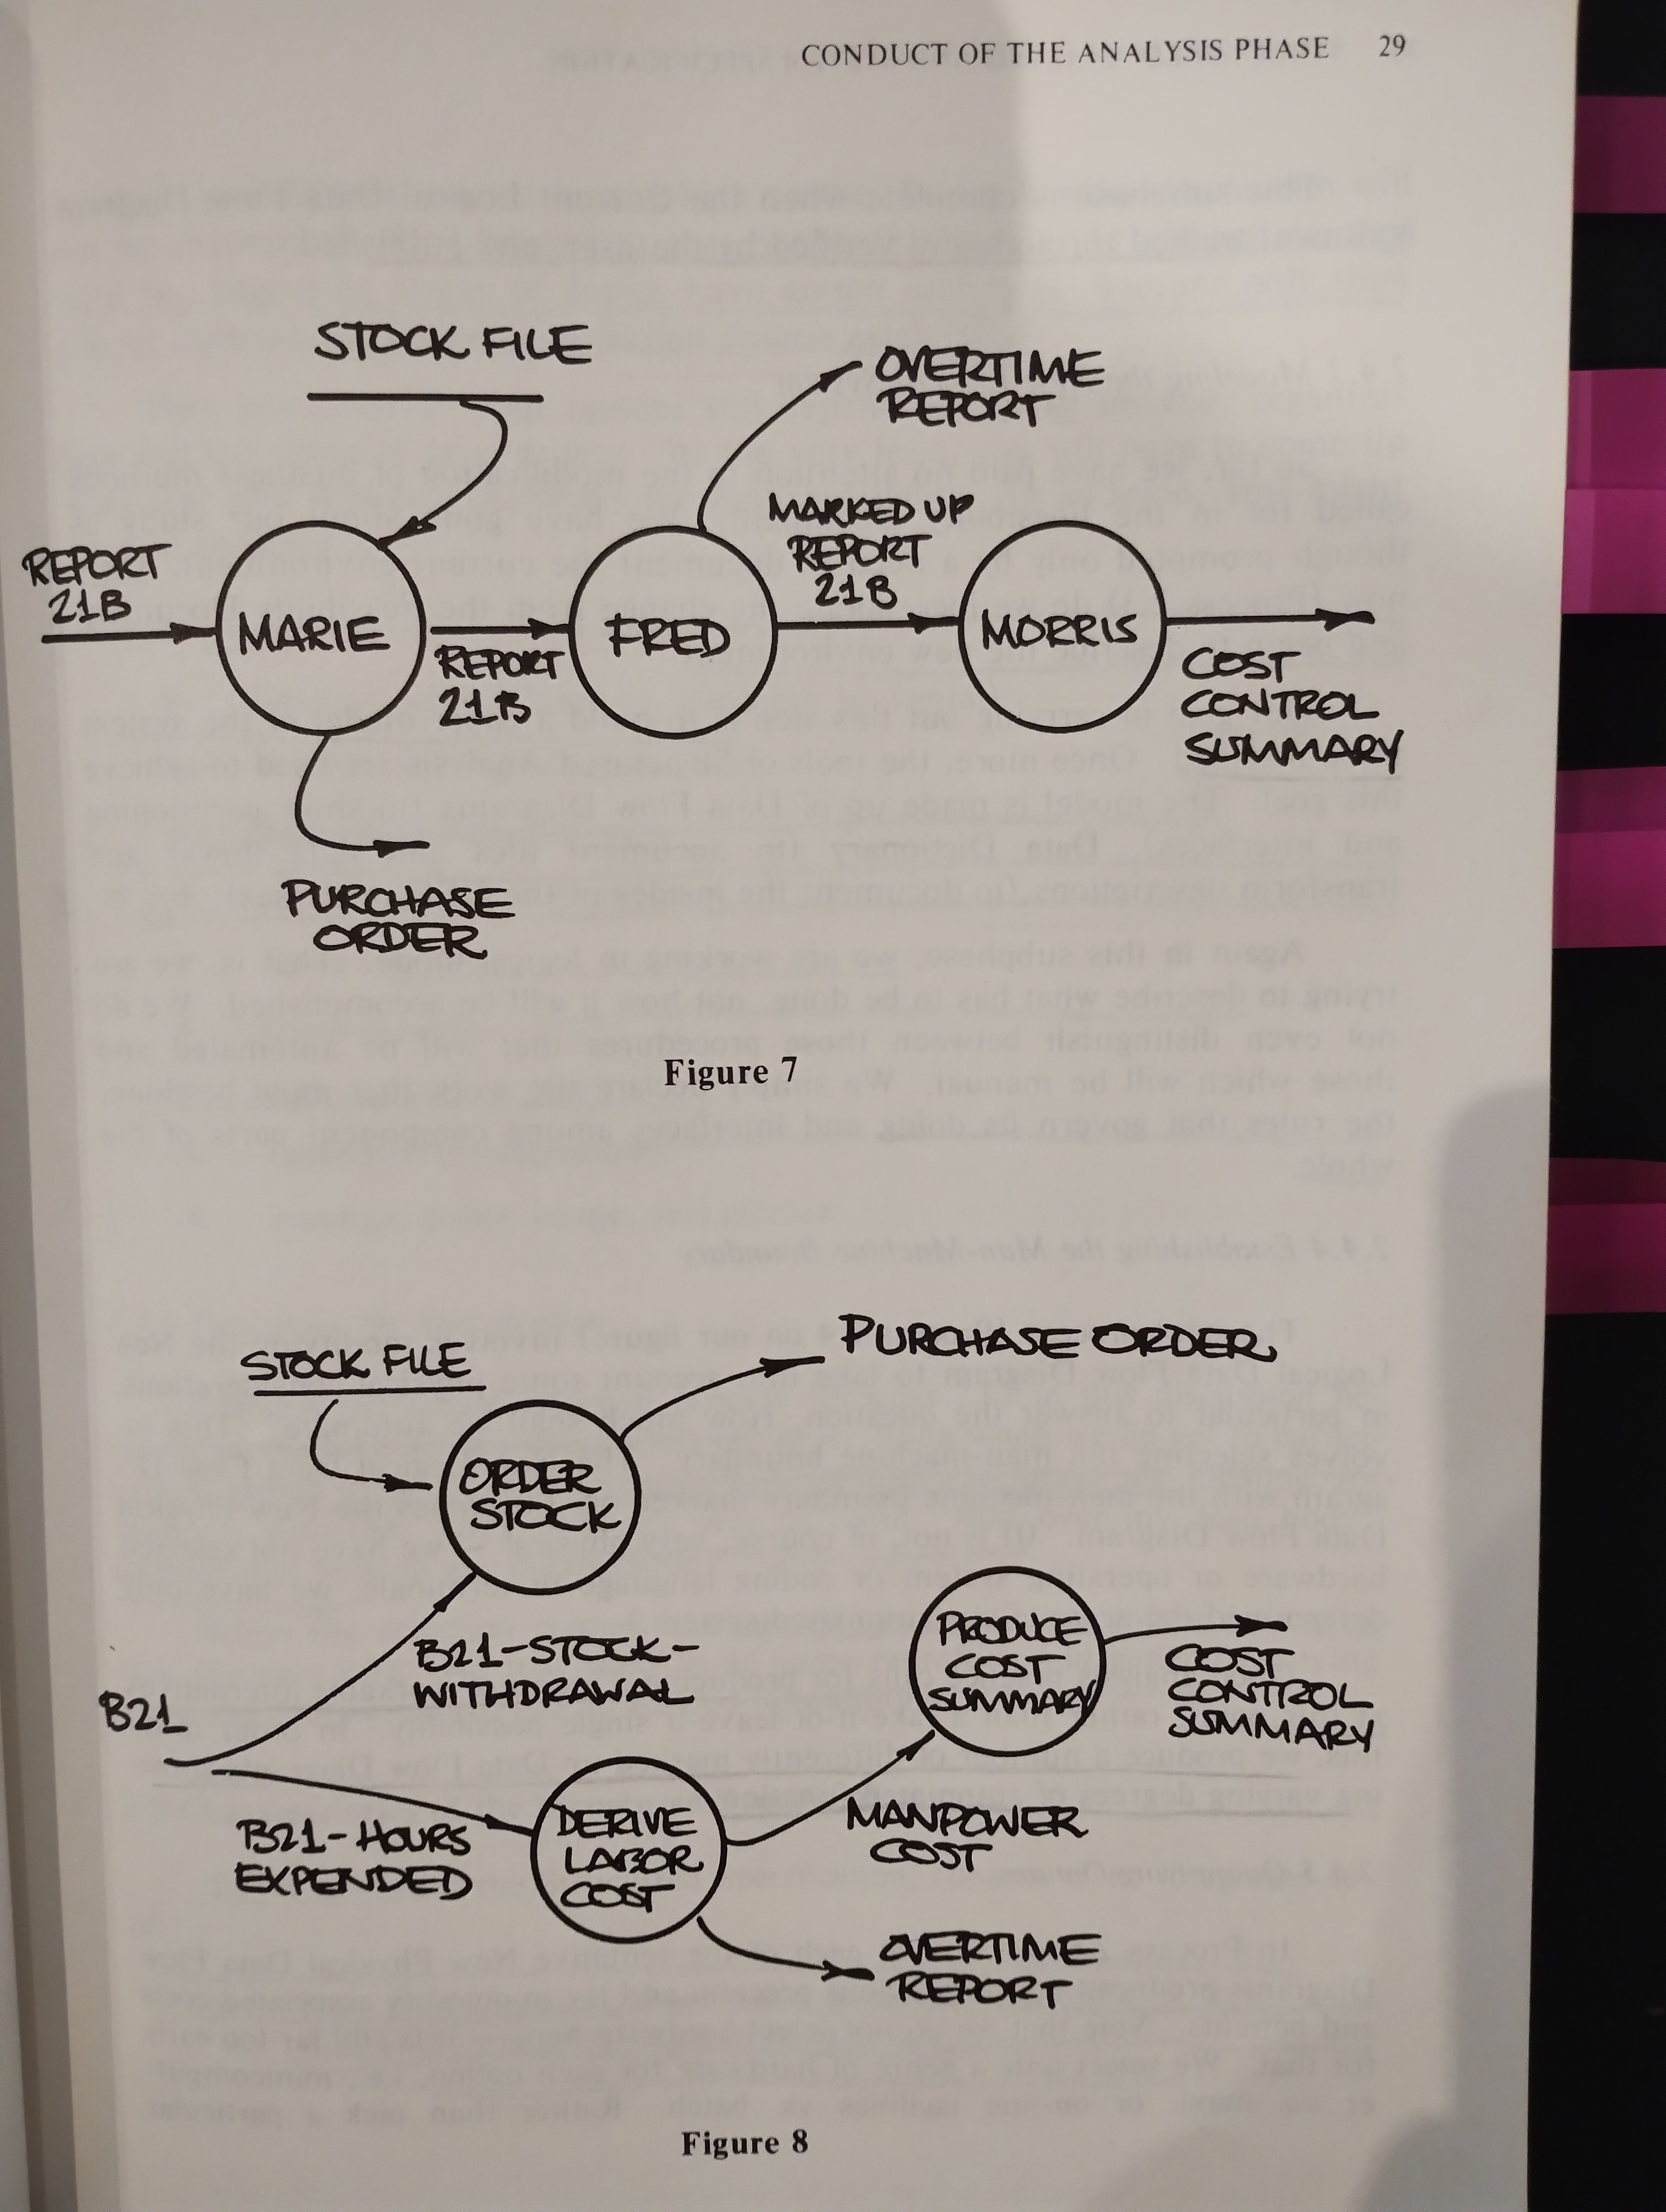 CONDUCT OF THE ANALYSIS PHASE 29
STOCK FILE
OVERTIME
REPORT
REPORT
21B
MARIE
REPORT
21B
FRED
MARKED UP
REPORT
21B
MORRIS
COST
CONTROL
SUMMARY
PURCHASE
ORDER
Figure 7
STOCK FILE
PURCHASE ORDER
ORDER
STOCK
B21
B21-STOCK-
WITHDRAWAL
PRODUCE
COST
SUMMARY
COST
CONTROL
SUMMARY
B21-HOURS
EXPENDED
DERIVE
LABOR
COST
MANPOWER
COST
OVERTIME
REPORT
Figure 8